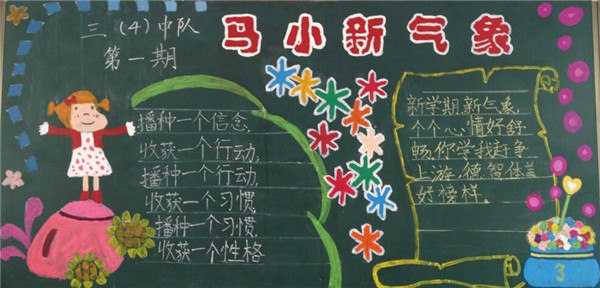 三（4）中队
第一期
马小新气象
播种一个信念,
收获一个行动,
播种一个行动,
收获一个习惯,
播种一个习惯,
收获一个性格
新学期新气象,
个个心情好舒
畅,你学我赶争
上游,德智体美
好榜样。
3